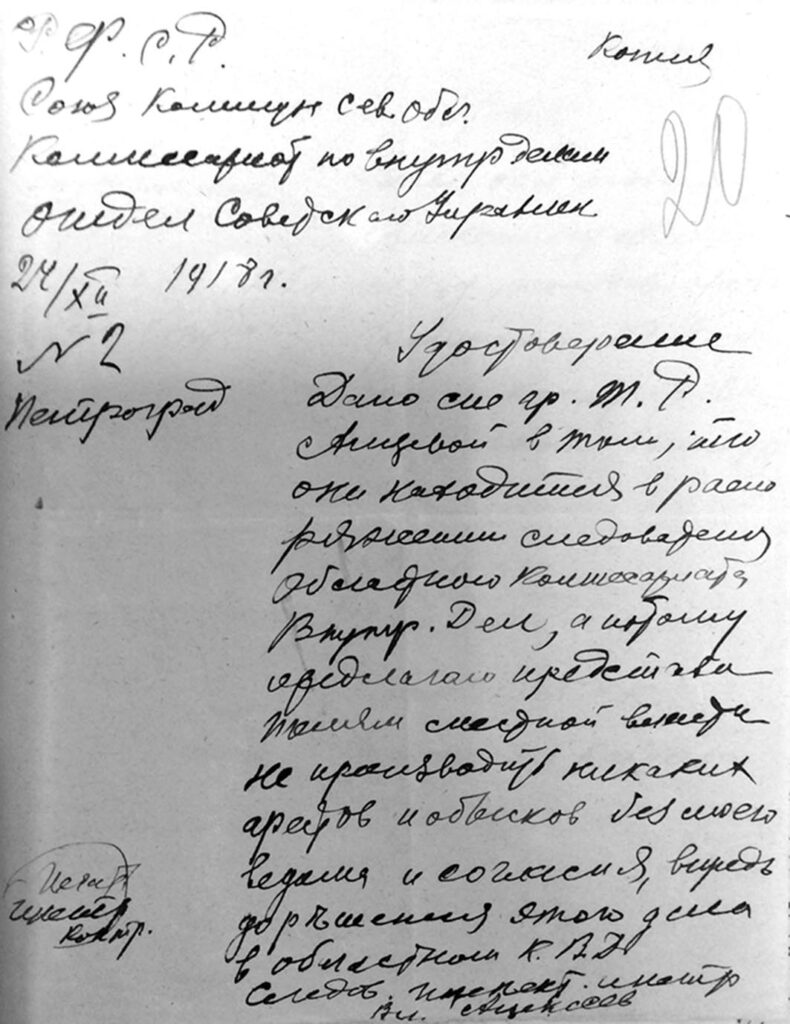 Р. Ф. С. Р.
Копия
20
Союз Коммун Сев. Обл.
Комиссариат по внутр делам
отдел Советского Управлен
24/XII 1918 г.
N 2
Петроград
Удостоверение
Дано сие гр. М. Р.
в том, что
они находится в распо
ряжении следователя
Областного Комиссариата
Внутр. Дел, а потому
предлагаю представи
телям местной власти
не производить никаких
арестов и обысков без моего
ведома и согласия, впредь
до рѣшения этого дела
в областном К. В. Д.
Следов. инспект. инстр
Вл. Алексеев
Печать
инстр
контр.